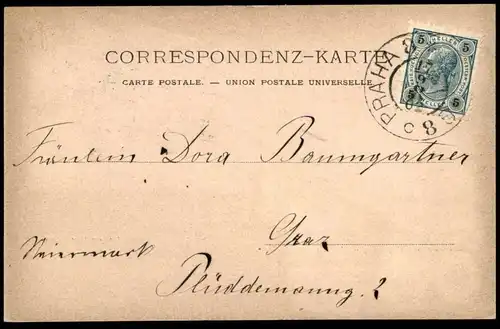 CORRESPONDENZ-KARTE
CARTE POSTALE. — UNION POSTALE UNIVERSELLE.
5 HELLER 5
5 5
PRAHA 8
c 8
Fräulein Dora Baumgartner
Graz
Steiermark
Plüddemanng. 2